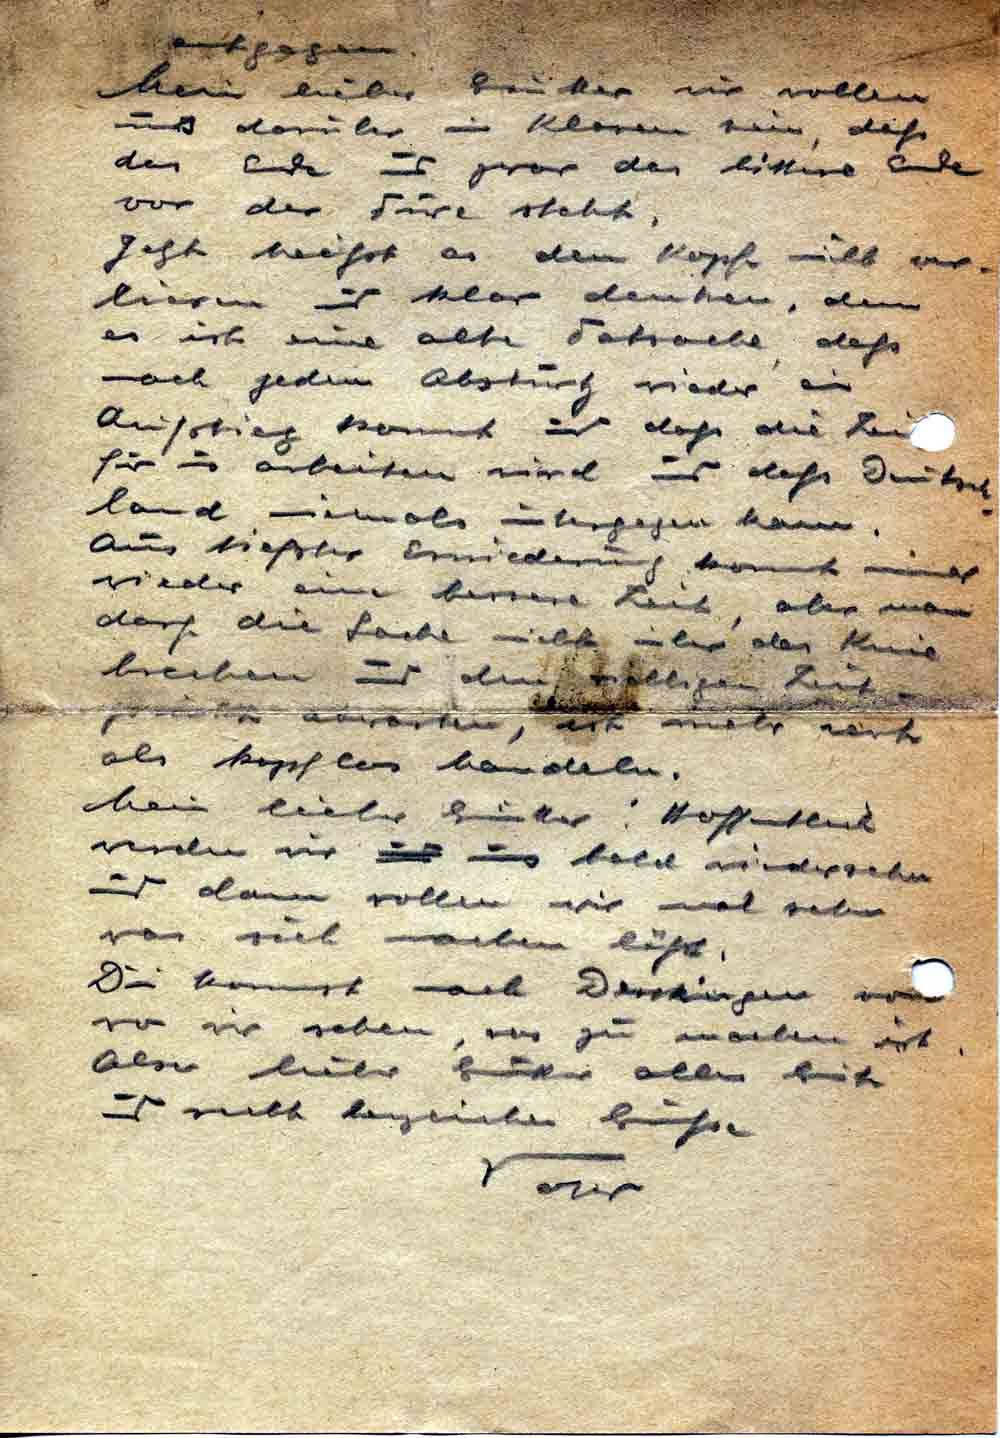 entgegen.
Mein lieber Günther wir wollen
uns darüber im Klaren sein, daß
das Ende und zwar das bittere Ende
vor der Türe steht.
Jetzt heißt es den Kopf nicht ver-
lieren und klar denken, denn
es ist eine alte Tatsache, daß
nach jedem Absturtz wieder ein
Aufstieg kommt und daß die Zeit
für uns arbeiten wird und daß Deutsch-
land niemals untergegen kann.
Aus tiefster Erniederung kommt immer
wieder eine bessere Zeit, aber man
darf die Sache nicht über das Knie
brechen und den
abwarten, ist mehr wert
als kopflos handeln.
Mein lieber Günther! Hoffentlich
werden wir uns bald wiedersehn
und dann wollen wir mal sehn
was sich machen läßt.
Du kommst nach
wo wir sehen, was zu machen ist.
Also lieber Günther alles Gute
und recht herzliche Grüße
Vater